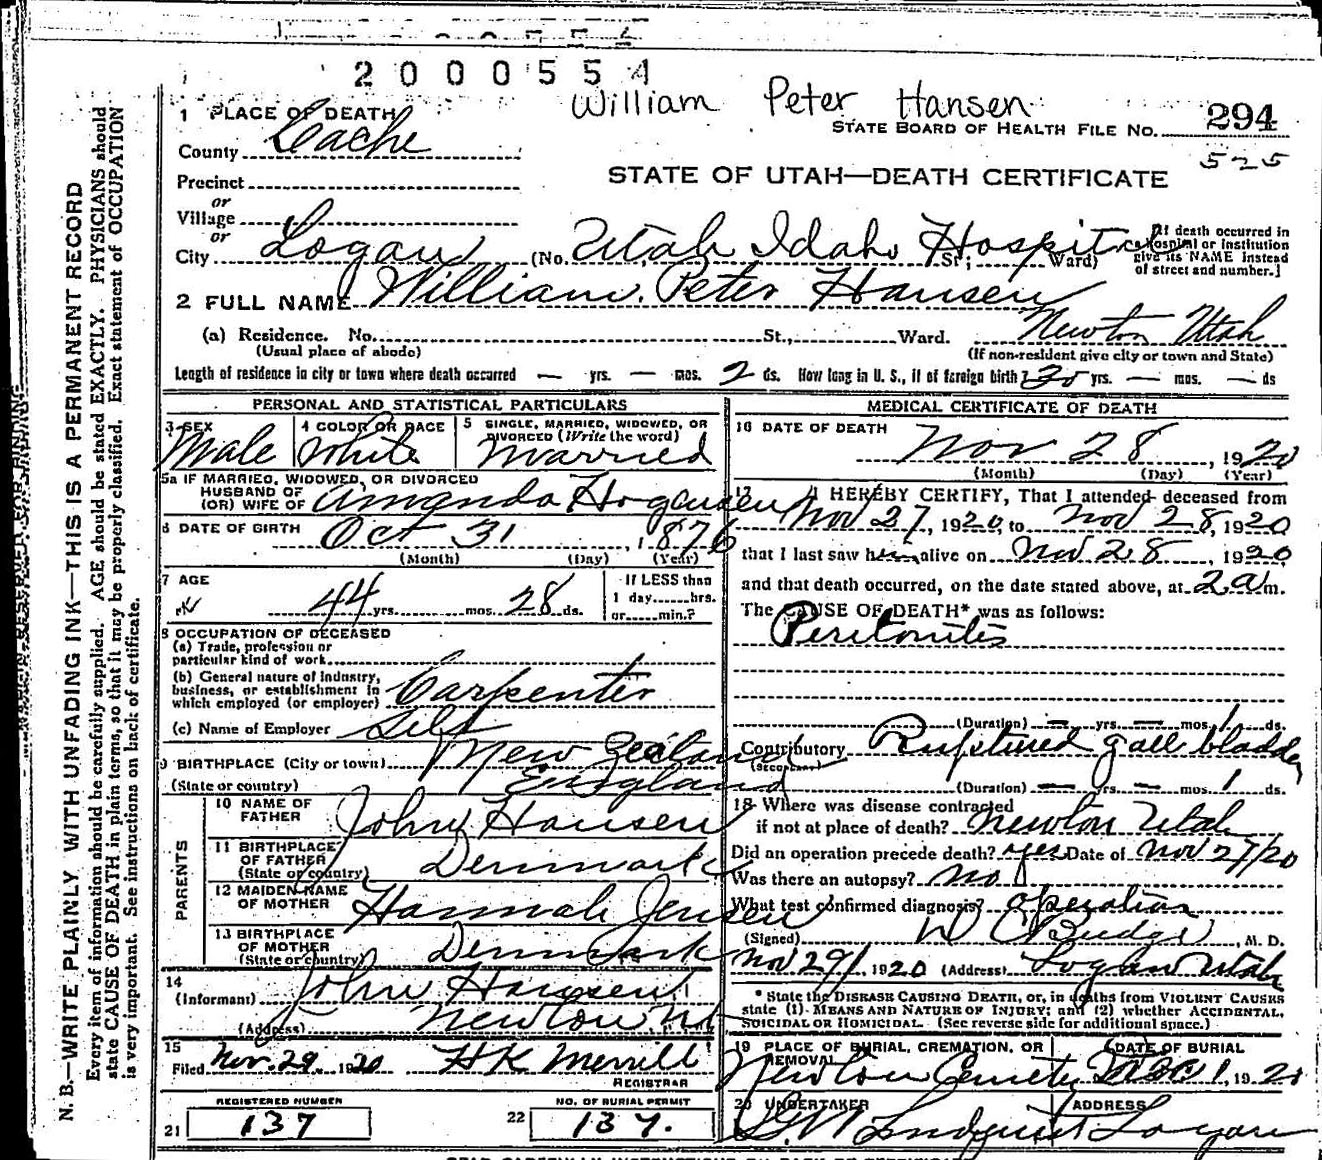 2000554
William Peter Hansen
1 PLACE OF DEATH
STATE BOARD OF HEALTH FILE NO. 294
525
County Cache
STATE OF UTAH—DEATH CERTIFICATE
Precinct
or
Village
or
City Logan (No. Utah Idaho Hospital St; Ward)
[If death occurred in
a hospital or institution
give its NAME instead
of street and number.]
2 FULL NAME William Peter Hansen
(a) Residence. No. St., Ward. Newton Utah
(Usual place of abode) (If non-resident give city or town and State)
Length of residence in city or town where death occurred — yrs. — mos. 2 ds. How long in U. S., if of foreign birth? 30 yrs. — mos. — ds
PERSONAL AND STATISTICAL PARTICULARS
3 SEX
Male
4 COLOR OR RACE
White
5 SINGLE, MARRIED, WIDOWED, OR
DIVORCED (Write the word)
Married
5a IF MARRIED, WIDOWED, OR DIVORCED
HUSBAND OF
(OR) WIFE OF Amanda Hogensen
6 DATE OF BIRTH
Oct 31, 1876
(Month) (Day) (Year)
7 AGE
44 yrs. mos. 28 ds.
If LESS than
1 day hrs.
or min.?
8 OCCUPATION OF DECEASED
(a) Trade, profession or
particular kind of work
(b) General nature of industry,
business, or establishment in
which employed (or employer) Carpenter
(c) Name of Employer Self
9 BIRTHPLACE (City or town) New Zealand
(State or country) England
PARENTS
10 NAME OF
FATHER John Hansen
11 BIRTHPLACE
OF FATHER
(State or country) Denmark
12 MAIDEN NAME
OF MOTHER Hannah Jensen
13 BIRTHPLACE
OF MOTHER
(State or country) Denmark
14
(Informant) John Hansen
(Address) Newton, Ut
15
Filed Nov. 29, 1920 H K Merrill
REGISTRAR
REGISTERED NUMBER
21 137
NO. OF BURIAL PERMIT
22 137.
MEDICAL CERTIFICATE OF DEATH
16 DATE OF DEATH
Nov 28, 1920
(Month) (Day) (Year)
17 I HEREBY CERTIFY, That I attended deceased from
Nov 27, 1920, to Nov 28, 1920
that I last saw him alive on Nov 28, 1920,
and that death occurred, on the date stated above, at 2 a m.
The CAUSE OF DEATH* was as follows:
Peritonitis
(Duration) — yrs. — mos. 1 ds.
Contributory Ruptured gall bladder
(SECONDARY)
(Duration) — yrs. — mos. 1 ds.
18 Where was disease contracted
if not at place of death? Newton Utah
Did an operation precede death? yes Date of Nov 27/20
Was there an autopsy? no
What test confirmed diagnosis? operation
(Signed) D C Budge, M. D.
Nov 29, 1920 (Address) Logan Utah
* State the DISEASE CAUSING DEATH, or, in deaths from VIOLENT CAUSES
state (1) MEANS AND NATURE OF INJURY; and (2) whether ACCIDENTAL,
SUICIDAL OR HOMICIDAL. (See reverse side for additional space.)
19 PLACE OF BURIAL, CREMATION, OR
REMOVAL
Newton Cemetery
DATE OF BURIAL
Dec 1, 1920
20 UNDERTAKER
Lindquist
ADDRESS
Logan
N. B.—WRITE PLAINLY, WITH UNFADING INK—THIS IS A PERMANENT RECORD
Every item of information should be carefully supplied. AGE should be stated EXACTLY. PHYSICIANS should
state CAUSE OF DEATH in plain terms, so that it may be properly classified. Exact statement of OCCUPATION
is very important. See instructions on back of certificate.